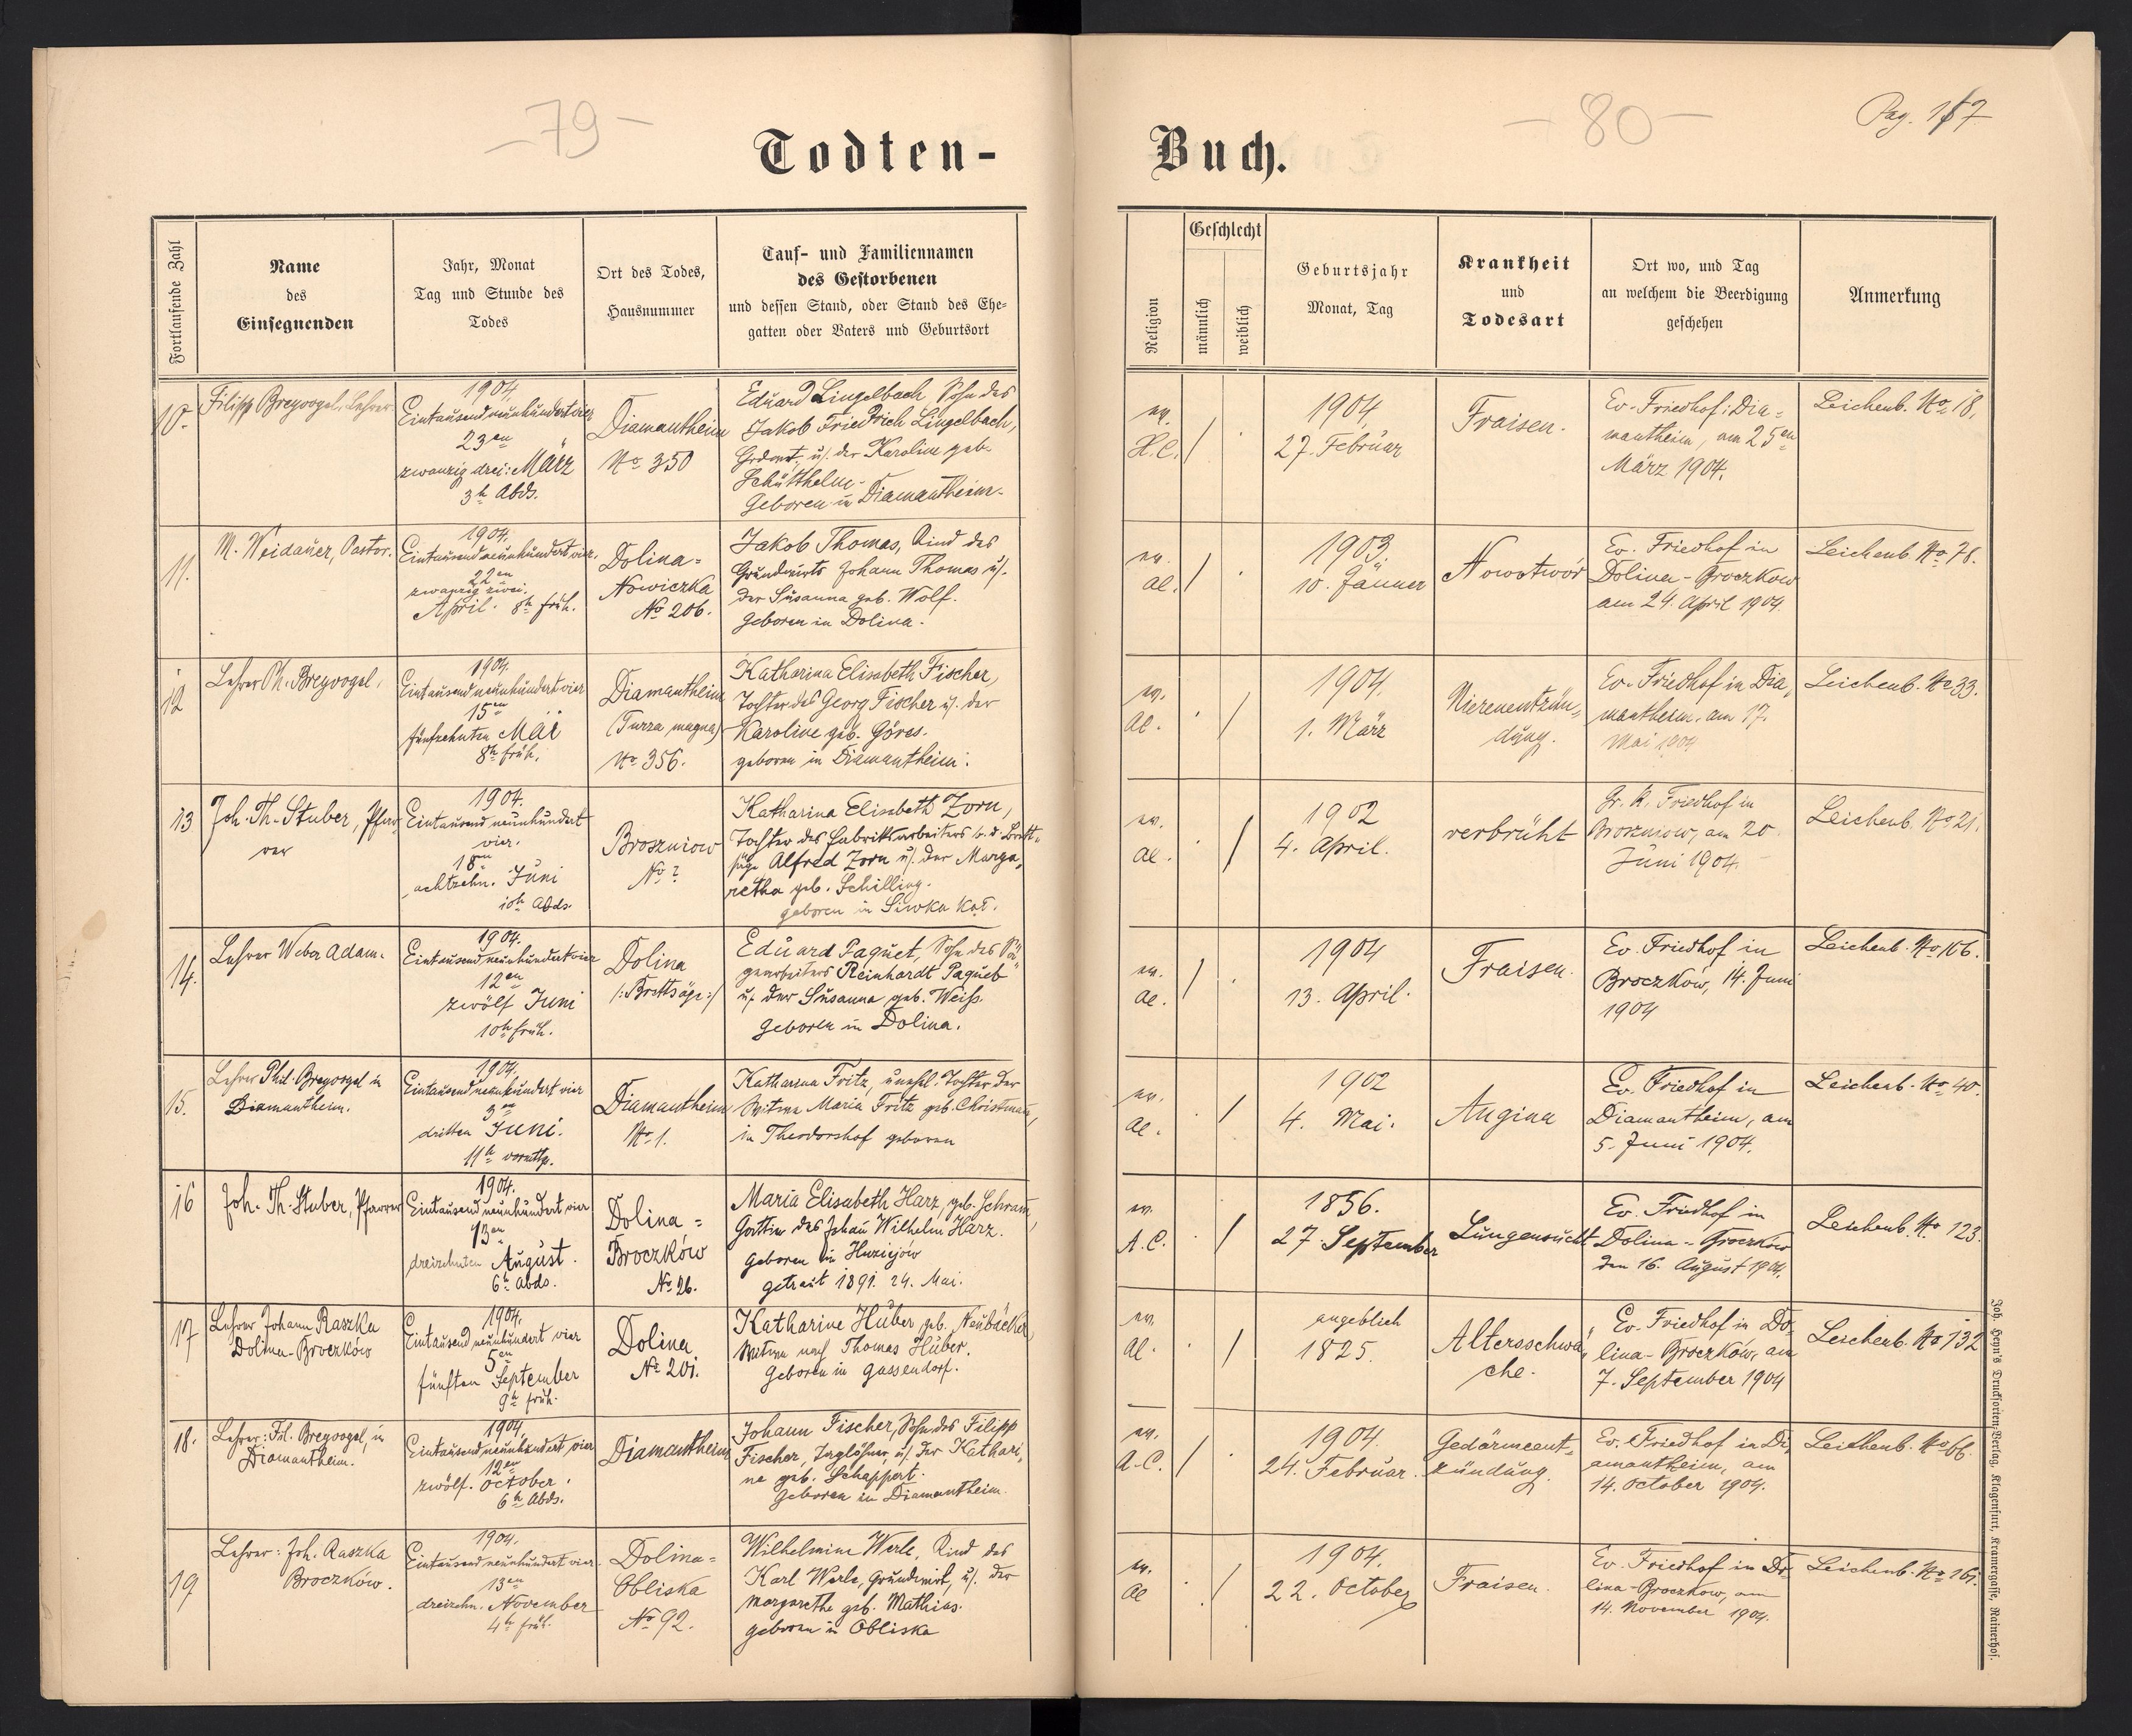 – 79 –
Todten-
Fortlaufende Zahl
Name
des
Einsegnenden
Jahr, Monat
Tag und Stunde des
Todes
Ort des Todes,
Hausnummer
Tauf- und Familiennamen
des Gestorbenen
und dessen Stand, oder Stand des Ehe-
gatten oder Vaters und Geburtsort
10.
Filipp Breyvogel, Lehrer
1904.
Eintausendneunhundertvier
23en
zwanzig drei: März
3h Abds.
Diamantheim
No 350
Eduard Lingelbach, Sohn des
Jakob Friedrich Lingelbach,
u/. der Karoline geb.
Schütthelm.
Geboren in Diamantheim.
11.
M. Weidauer, Pastor.
1904.
Eintausendneunhundertvier.
22en
zwanzig zwei.
April. 8h früh.
Dolina=
Nowiczka
No 206.
Jakob Thomas, Kind des
Grundwirts Johann Thomas u/.
der Susanna geb. Wolf.
Geboren in Dolina.
12
Lehrer Ph. Breyvogel.
1904.
Eintausendneunhundertvier
15en
fünfzehnten Mai
8h früh.
Diamantheim
(Turza magna)
No 356.
Katharina Elisabeth Fischer,
Tochter des Georg Fischer u/. der
Karoline geb. Göres.
geboren in Diamantheim.
13
Joh. Th. Stuber, Pfar-
rer
1904.
Eintausend neunhundert
vier.
18en
achtzehn. Juni
10h Abds.
Broszniow
No ?
Katharina Elisabeth Zorn,
Tochter des Fabriksarbeiters b. d. Brett-
säge Alfred Zorn u/. der Marga-
retha geb. Schilling.
geboren in Siwka Kał.
14.
Lehrer Weber Adam.
1904.
Eintausendneunhundertvier
12en
zwölf Juni
10h früh.
Dolina
/:Brettsäge:/
Eduard Paquet, Sohn des Sä-
gearbeiters Reinhardt Paquet
u/. der Susanna geb. Weiß.
geboren in Dolina.
15.
Lehrer Phil. Breyvogel in
Diamantheim.
1904.
Eintausendneunhundert vier
3en
dritten Juni.
11h vormttg.
Diamantheim
No 1.
Katharina Fritz, unehl. Tochter der
Witwe Maria Fritz geb. Christmann,
in Theodorshof geboren
16
Joh. Th. Stuber, Pfarrer
1904.
Eintausend neunhundert vier
13en
dreizehnten August.
6h Abds.
Dolina=
Broczków
No 26.
Maria Elisabeth Harz, geb. Schram,
Gattin des Johan Wilhelm Harz.
Geboren in Huziejów
getraut 1891. 24. Mai.
17
Lehrer Johann Raszka
Dolina-Broczków
1904.
Eintausend neunhundert vier
5en
fünften September
9h früh.
Dolina
No 201.
Katharine Huber geb. Neubäcker,
Witwe nach Thomas Huber.
Geboren in Gassendorf.
18.
Lehrer: Fil. Breyvogel, in
Diamantheim.
1904.
Eintausendneunhundert vier
12en
zwölf. October.
6h Abds.
Diamantheim
Johann Fischer, Sohn des Filipp
Fischer, Taglöhner, u/. der Kathari-
ne geb. Schappert.
Geboren in Diamantheim.
19
Lehrer: Joh. Raszka
Broczków.
1904.
Eintausendneunhundert vier.
13en
dreizehn. November
4h früh.
Dolina=
Obliska
No 92.
Wilhelmine Werle, Kind des
Karl Werle, Grundwirt, u/. der
Margarethe geb. Mathias.
geboren in Obliska
– 80 –
Pag. 117
Buch.
Religion
Geschlecht
männlich
weiblich
Geburtsjahr
Monat, Tag
Krankheit
und
Todesart
Ort wo, und Tag
an welchem die Beerdigung
geschehen
Anmerkung
ev.
H.C.
/
1904.
27. Februar
Fraisen.
Ev. Friedhof: Dia-
mantheim, am 25en
März 1904.
Leichenb. No 18.
ev.
AC.
/
1903.
10. Jänner
Nowotwór
Ev. Friedhof in
Dolina-Broczkow
am 24. April 1904.
Leichenb. No 78.
ev.
AC.
/
1904.
1. März
Nierenentzün-
dung.
Ev. Friedhof in Dia-
mantheim. am 17.
Mai 1904
Leichenb. No 33.
ev.
AC.
/
1902
4. April.
verbrüht
Gr. K. Friedhof in
Broszniow, am 20.
Juni 1904.
Leichenb. No 21.
ev.
AC.
/
1904
13. April.
Fraisen.
Ev. Friedhof in
Broczków, 14. Juni
1904
Leichenb. No 106.
ev.
AC.
/
1902
4. Mai.
Angina
Ev. Friedhof in
Diamantheim, am
5. Juni 1904.
Leichenb. No 40.
ev.
A.C.
/
1856.
27. September
Lungensucht
Ev. Friedhof in
Dolina-Broczków
den 16. August 1904.
Leichenb. No 123.
ev.
AC.
/
angeblich
1825.
Altersschwä-
che.
Ev. Friedhof in Do-
lina-Broczków, am
7. September 1904
Leichenb. No 132
ev.
A.C.
/
1904.
24. Februar.
Gedärmeent-
zündung.
Ev. Friedhof in Di-
amantheim, am
14. October 1904.
Leichenb. No 66.
ev.
AC
/
1904.
22. October
Fraisen.
Ev. Friedhof in Do-
lina-Broczkow, am
14. November 1904.
Leichenb. No 161.
Joh. Heyn's Drucksorten-Verlag, Klagenfurt, Kramergasse, Rainerhof.